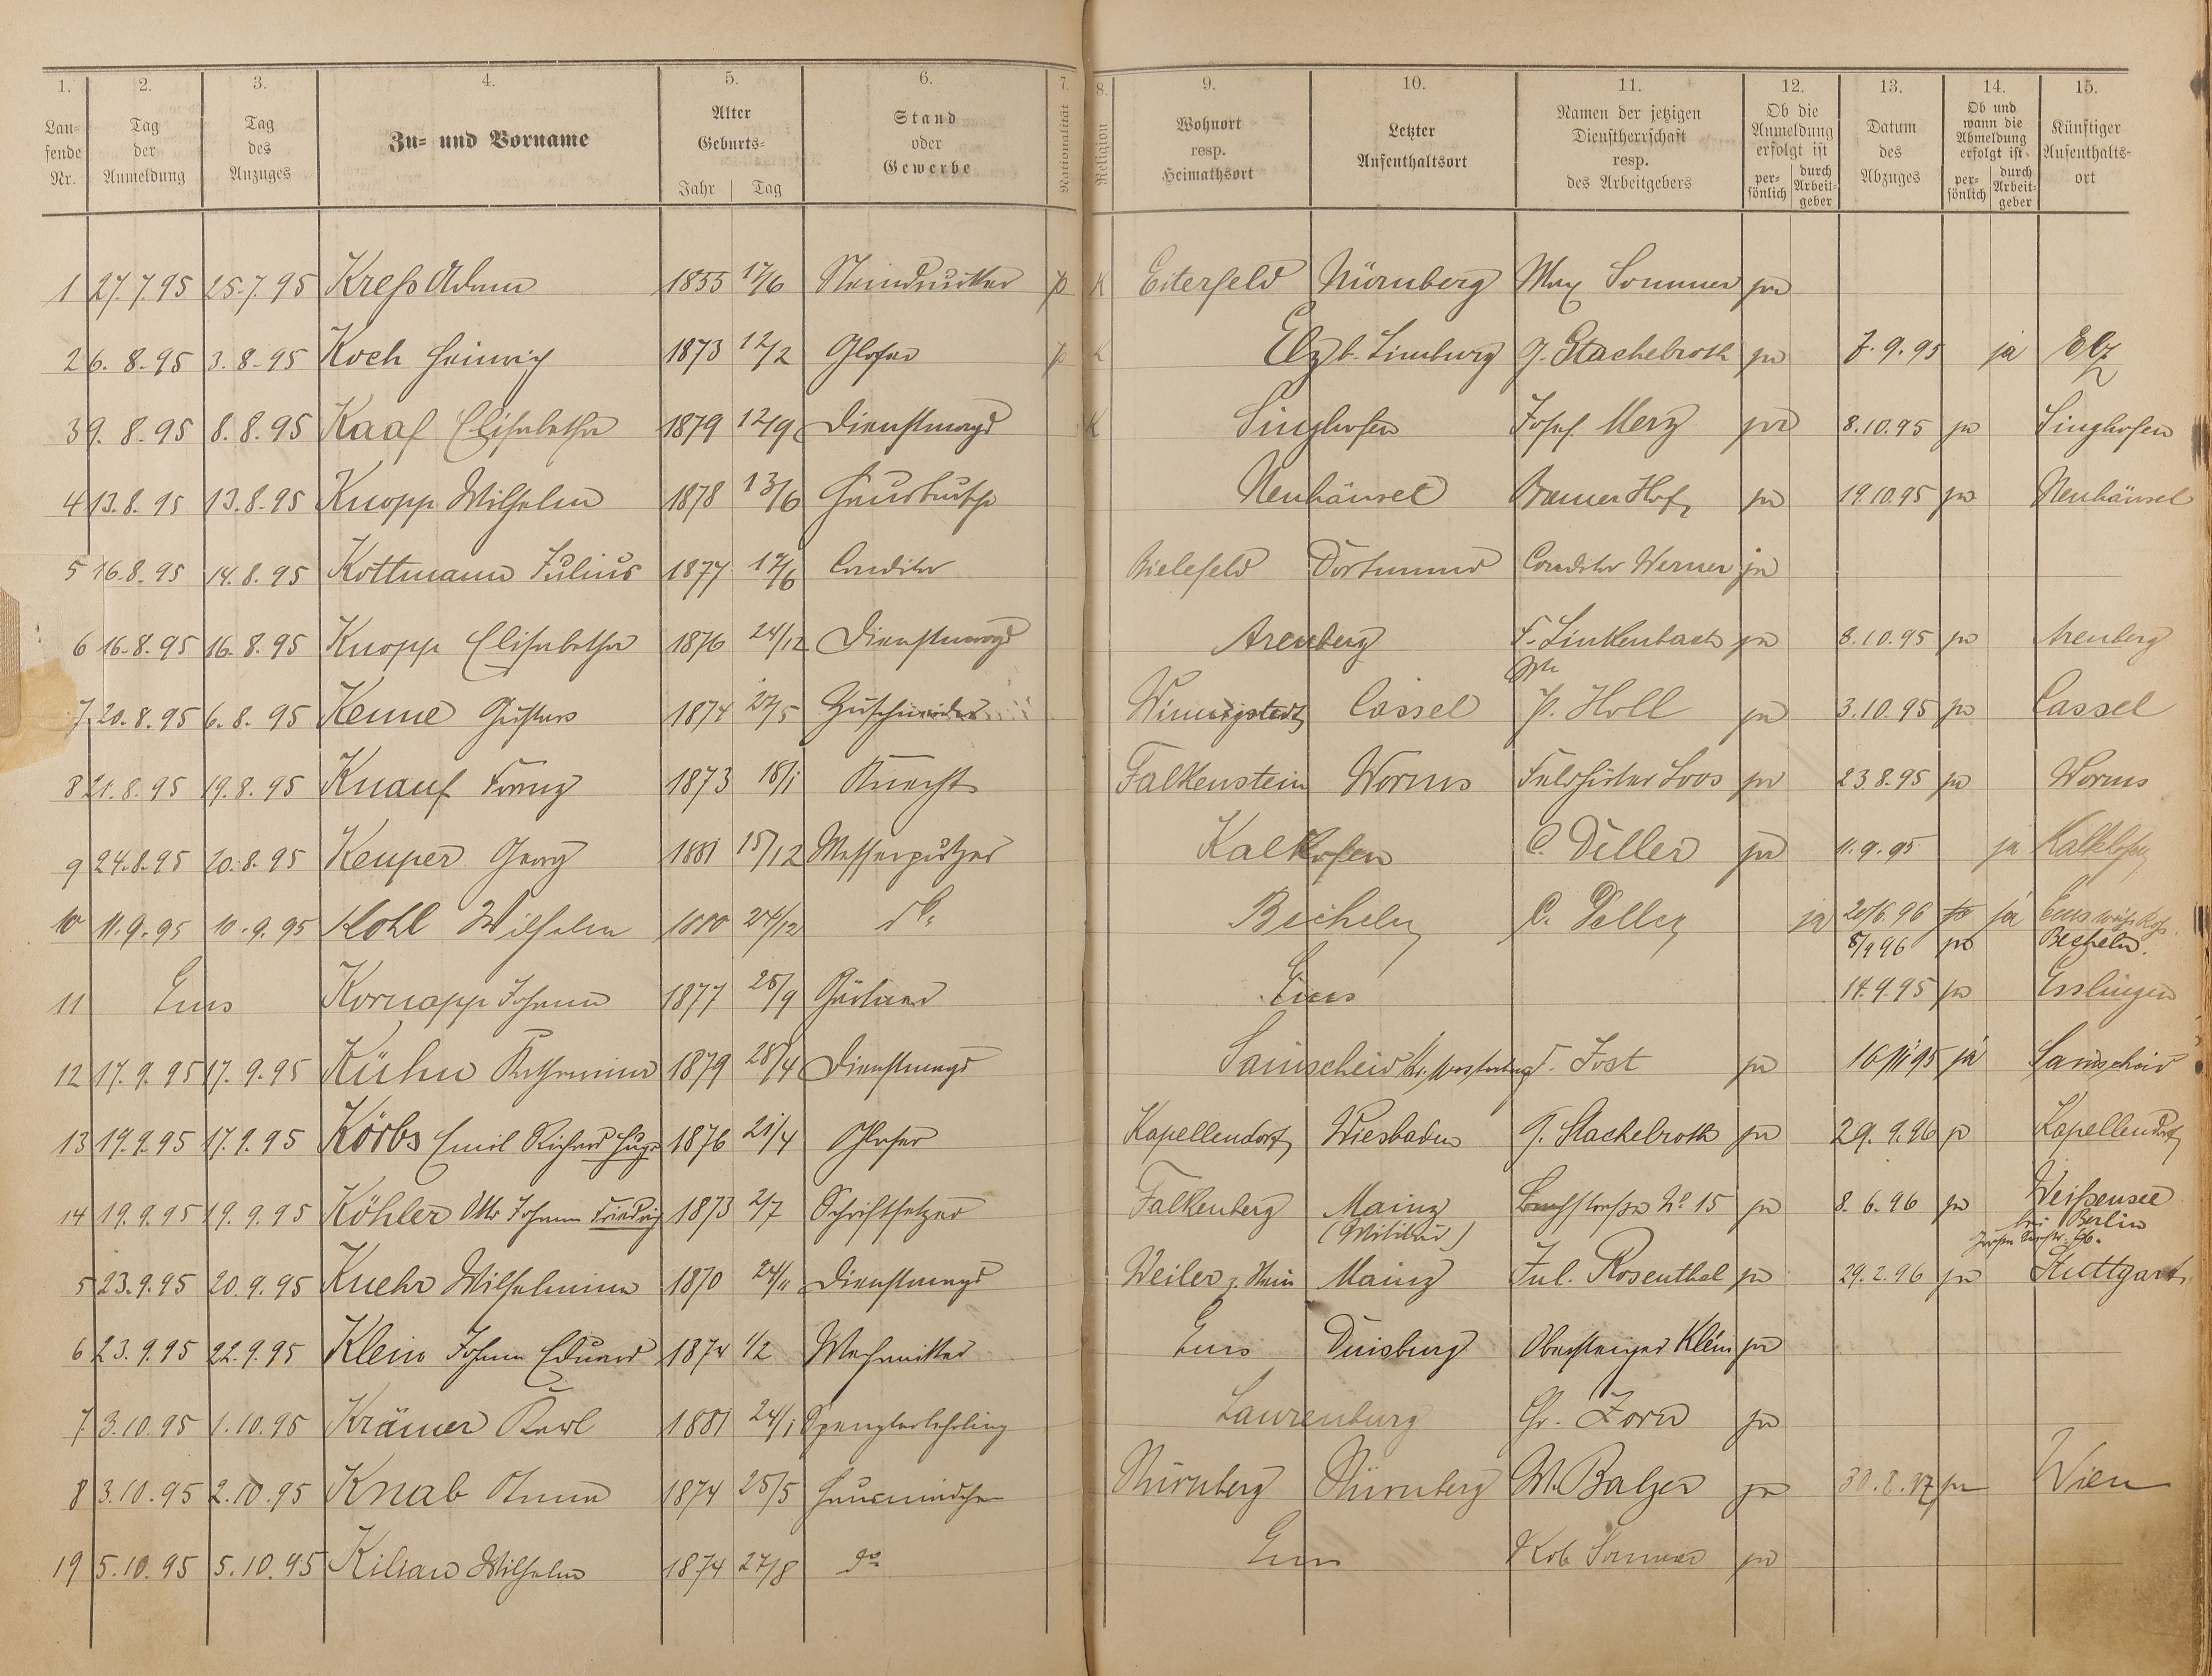 1. 2. 3. 4. 5. 6. 7. 8. 9. 10. 11. 12. 13. 14. 15.
Lau-
fende
Nr.
Tag
der
Anmeldung
Tag
des
Anzuges
Zu- und Vorname
Alter
Geburts-
Jahr Tag
Stand
oder
Gewerbe
Nationalität
Religion
Wohnort
resp.
Heimathsort
Letzter
Aufenthaltsort
Namen der jetzigen
Dienstherrschaft
resp.
des Arbeitgebers
Ob die
Anmeldung
erfolgt ist
per-
sönlich
durch
Arbeit-
geber
Datum
des
Abzuges
Ob und
wann die
Abmeldung
erfolgt ist
per-
sönlich
durch
Arbeit-
geber
Künftiger
Aufenthalts-
ort
1 27.7.95 25.7.95 Kreß Adam 1855 17/6 Steindrucker p K Eiterfeld Nürnberg Max Sommer ja
2 6.8.95 3.8.95 Koch Heinrich 1873 12/2 Glaser p K Elz b. Limburg G. Stachelroth ja 7.9.95 ja Elz
3 9.8.95 8.8.95 Kaaf Elisabetha 1879 12/9 Dienstmagd K Singhofen Josef Merz ja 8.10.95 ja Singhofen
4 13.8.95 13.8.95 Knopp Wilhelm 1878 13/6 Hausbursche Neuhäusel Bramer Hof ja 19.10.95 ja Neuhäusel
5 16.8.95 14.8.95 Kottmann Julius 1877 17/6 Conditor Bielefeld Dortmund Conditor Werner ja
6 16.8.95 16.8.95 Knopp Elisabetha 1876 24/12 Dienstmagd Arenberg F. Linkenbach ja 8.10.95 ja Arenberg
7 20.8.95 6.8.95 Kenne Gustav 1874 27/5 Zuschneider Winnigstedt Cassel P. Holl ja 3.10.95 ja Cassel
8 21.8.95 19.8.95 Knauf Franz 1873 18/1 Knecht Falkenstein Worms Feldhüter Loos ja 23.8.95 ja Worms
9 24.8.95 20.8.95 Keuper Georg 1881 15/12 Messerputzer Kalkofen C. Deller ja 11.9.95 ja Kalkofen
10 11.9.95 10.9.95 Kohl Wilhelm 1880 24/12 do. Becheln C. Deller ja 20/6.96 ja ja Ems weiß. Roß.
8/9 96 ja Becheln.
11 Ems Kornapp Johann 1877 28/9 Gärtner Ems 14.9.95 ja Esslingen
12 17.9.95 17.9.95 Kühn Katharina 1879 28/4 Dienstmagd Sainscheid Kr. Westerburg F. Jost ja 16/11 95 ja Sainscheid
13 19.9.95 17.9.95 Körbs Emil Richard Hugo 1876 21/4 Glaser Kapellendorf Wiesbaden G. Stachelroth ja 29.9.96 ja Kapellendorf
14 19.9.95 19.9.95 Köhler Otto Johann Friedrich 1873 2/7 Schriftsetzer Falkenberg Mainz No 15 ja 8.6.96 ja Weißensee
(Militär) bei Berlin
5 23.9.95 20.9.95 Kuehr Wilhelmine 1870 24/11 Dienstmagd Weiler Mainz Jul. Rosenthal ja 29.2.96 ja Stuttgart
6 23.9.95 22.9.95 Klein Johann Eduard 1874 1/2 Mechaniker Ems Duisburg Obersteiger Klein ja
7 3.10.95 1.10.95 Krämer Karl 1881 24/1 Spenglerlehrling Laurenburg Chr. Zorn ja
8 3.10.95 2.10.95 Knab Anna 1874 25/5 Hausmädchen Nürnberg Nürnberg W. Balzer ja 30.8.97 ja Wien
19 5.10.95 5.10.95 Kilian Wilhelm 1874 27/8 do Ems Kob Sommer ja